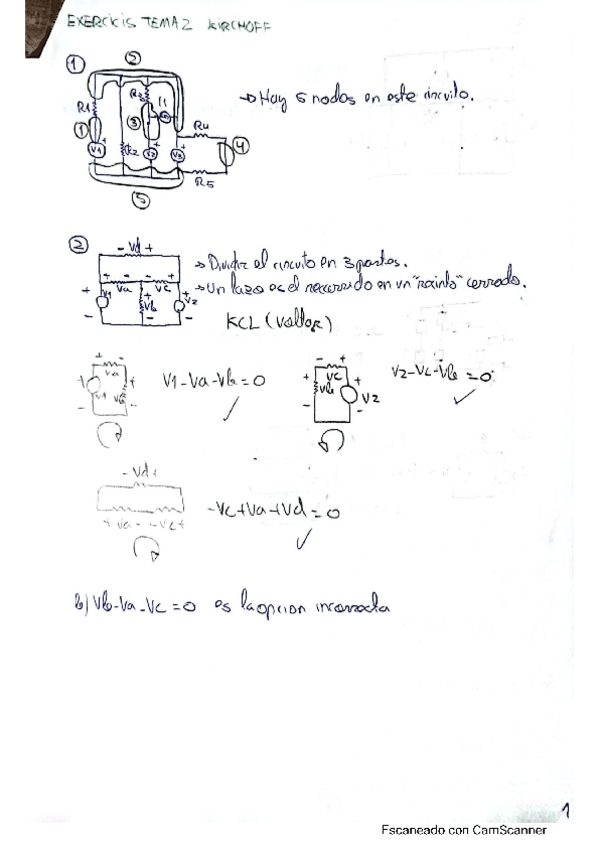 EXERCICIS TEMA 2 KIRCHOFF
① ②
R1 R3 I1 → Hay 5 nodos en este circuito.
① ③ R4 ④
V1 R2 V2 V3
R5
⑤
② - Vd +
→ Dividir el circuito en 3 partes.
→ Un lazo es el recorrido en un "recinto" cerrado.
+ V1 - + Va - - Vc + + Vb - + V2 -
KCL (voltor)
Va V1 Vb V1-Va-Vb=0 ✓
Vc Vb V2 V2-Vc-Vb=0 ✓
- Vd +
+ Va - - Vc +
-Vc+Va+Vd=0 ✓
b) Vb-Va-Vc=0 es la opcion incorrecta
1
Escaneado con CamScanner